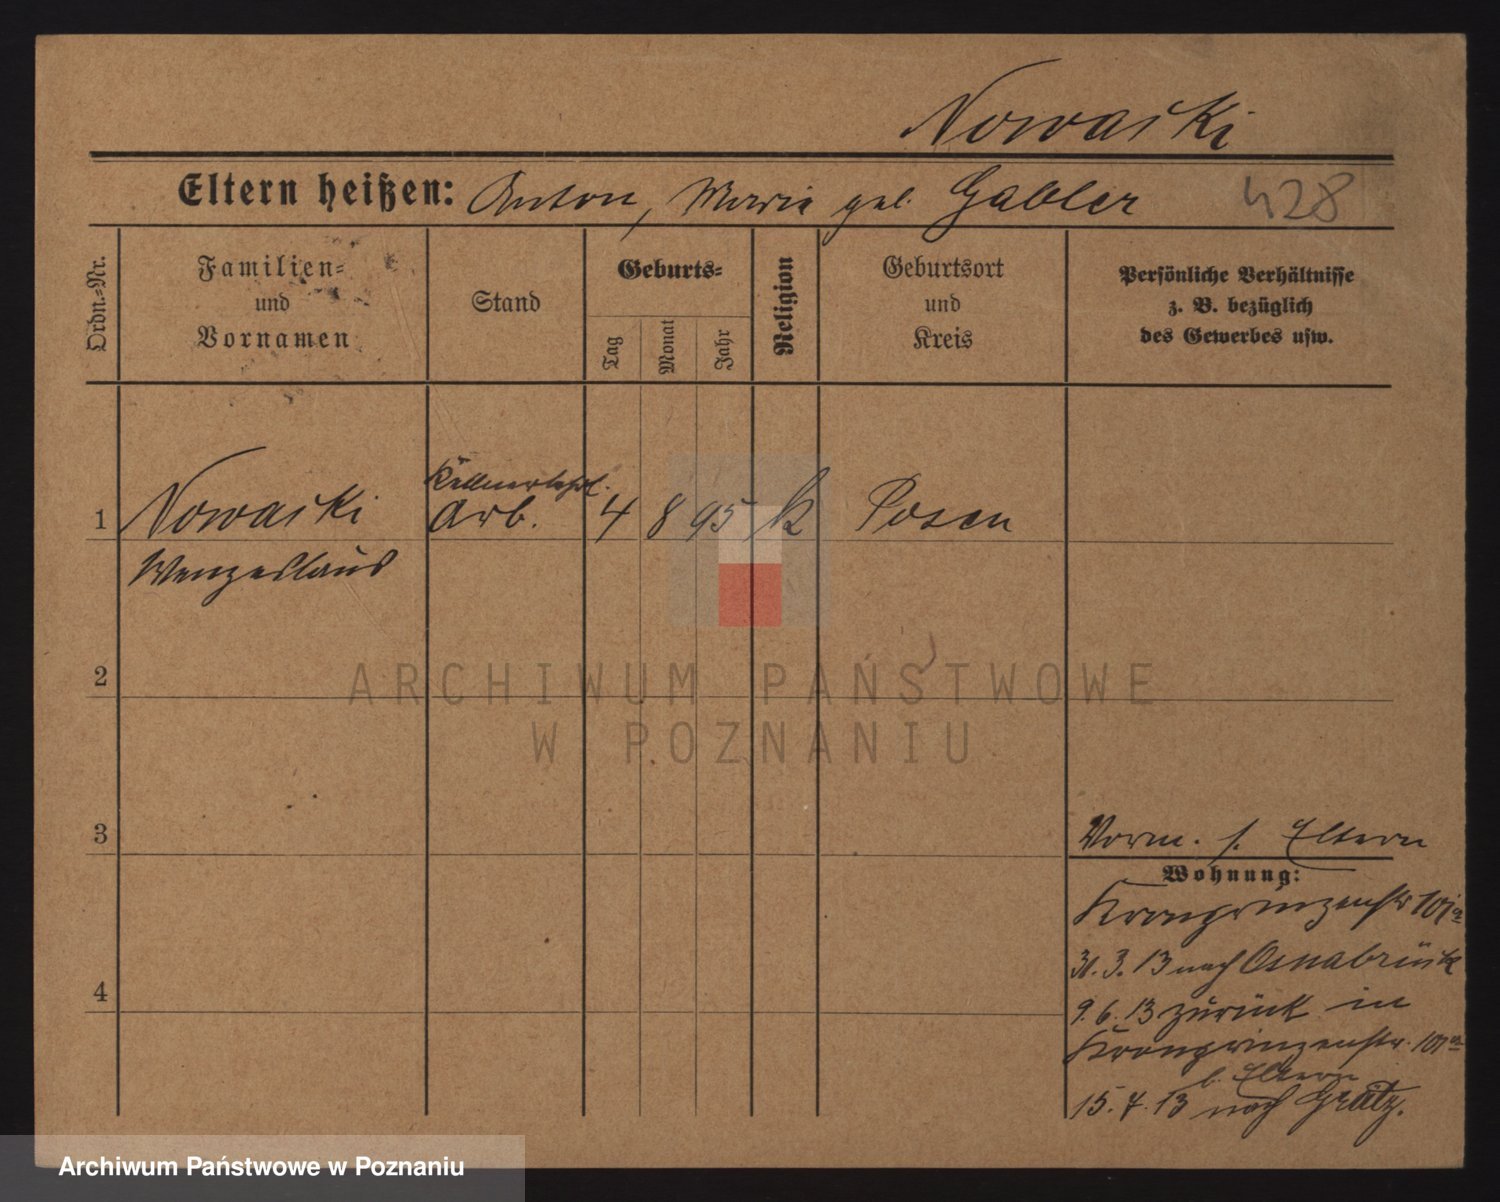 Nowacki
Eltern heißen: Anton, Marie geb. Gabler 428
Ordn.-Nr.
Familien-
und
Vornamen
Stand
Geburts-
Tag
Monat
Jahr
Religion
Geburtsort
und
Kreis
Persönliche Verhältnisse
z. B. bezüglich
des Gewerbes usw.
Kellnerlehrl.
1 Nowacki Arb. 4 8 95 k Posen
Wenzeslaus
2
ARCHIWUM PAŃSTWOWE
W POZNANIU
3
Vorm. s. Eltern
Wohnung:
Kronprinzenstr
31. 3. 13 nach Osnabrück
4
9. 6. 13 zurück in
Kronprinzenstr.
b. Eltern
15. 7. 13 nach Grätz.
Archiwum Państwowe w Poznaniu